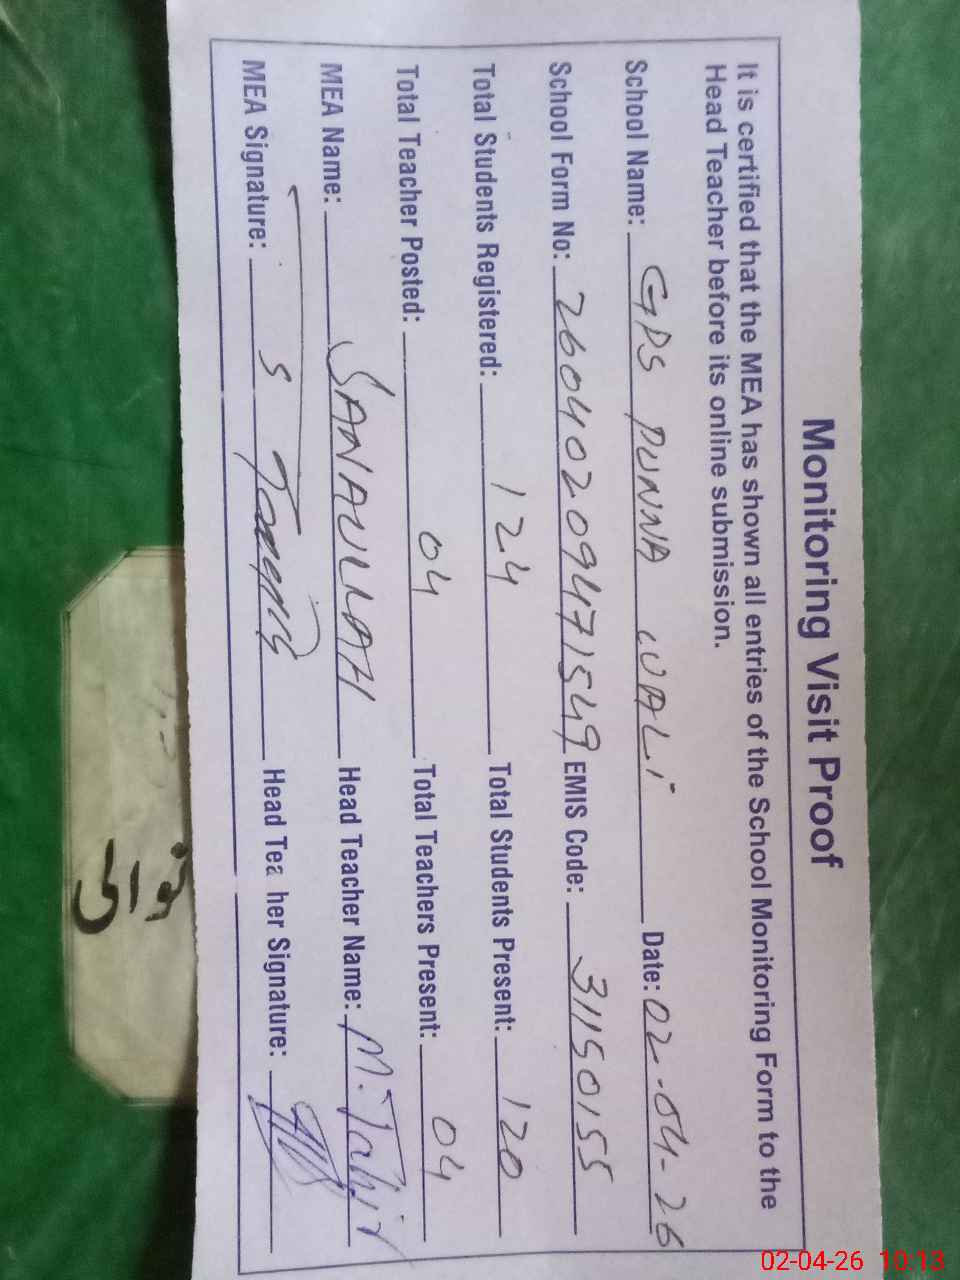 Monitoring Visit Proof
It is certified that the MEA has shown all entries of the School Monitoring Form to the
Head Teacher before its online submission.
School Name: GPS PUNNA WALI Date: 02-04-26
School Form No: 26040209471549 EMIS Code: 31150155
Total Students Registered: 124 Total Students Present: 120
Total Teacher Posted: 04 Total Teachers Present: 04
MEA Name: SANAULLAH Head Teacher Name: M. Tahir
MEA Signature: Head Tea her Signature:
نوالی
02-04-26 10:13